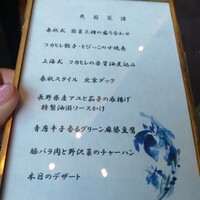 春秋式 前菜三種の盛り合わせ
フカヒレ餃子・とびっこのせ焼売
上海式 フカヒレの姿醤油煮込み
春秋スタイル 北京ダック
長野県産アユと茄子の春揚げ
特製油淋ソースかけ
青唐辛子香るグリーン麻婆豆腐
豚バラ肉と野沢菜のチャーハン
本日のデザート